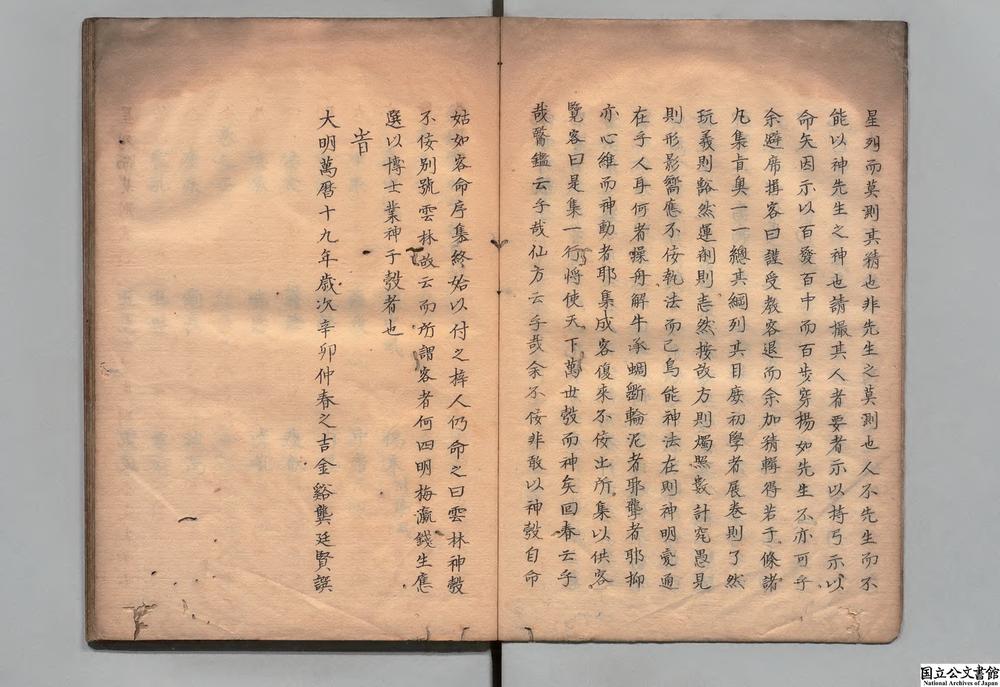 星列而莫測其精也非先生之莫測也人不先生而不
能以神先生之神也請撮其人者要者示以持弓示以
命矢因示以百發百中而百步穿楊如先生不亦可乎
余避席揖客曰謹受教客退而余加精輯得若于條諸
凡集旨奧一一總其綱列其目庶初學者展卷則了然
玩義則豁然運劑則恚然按故方則燭照數計究愚見
則形影響應不佞執法而已烏能神法在則神明變通
在乎人耳何者操舟解牛承蜩斲輪泥者耶鑿者耶抑
亦心維而神動者耶集成客復來不佞出所集以供客
覽客曰是集一行將使天下萬世彀而神矣回春云乎
哉醫鑑云乎哉仙方云乎哉余不佞非敢以神彀自命
姑如客命序集終始以付之梓人仍命之曰雲林神彀
不佞別號雲林故云而所謂客者何四明梅瀛錢生應
選以博士業神于彀者也
旹
大明萬曆十九年歲次辛卯仲春之吉金谿龔廷賢譔
国立公文書館
National Archives of Japan